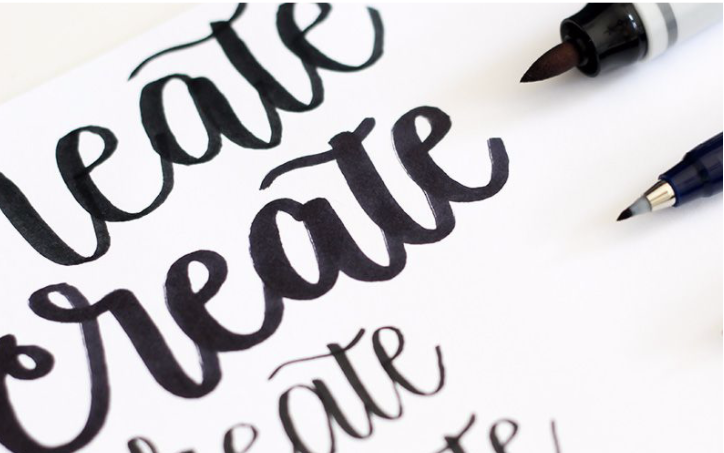 reate
create
reate
te